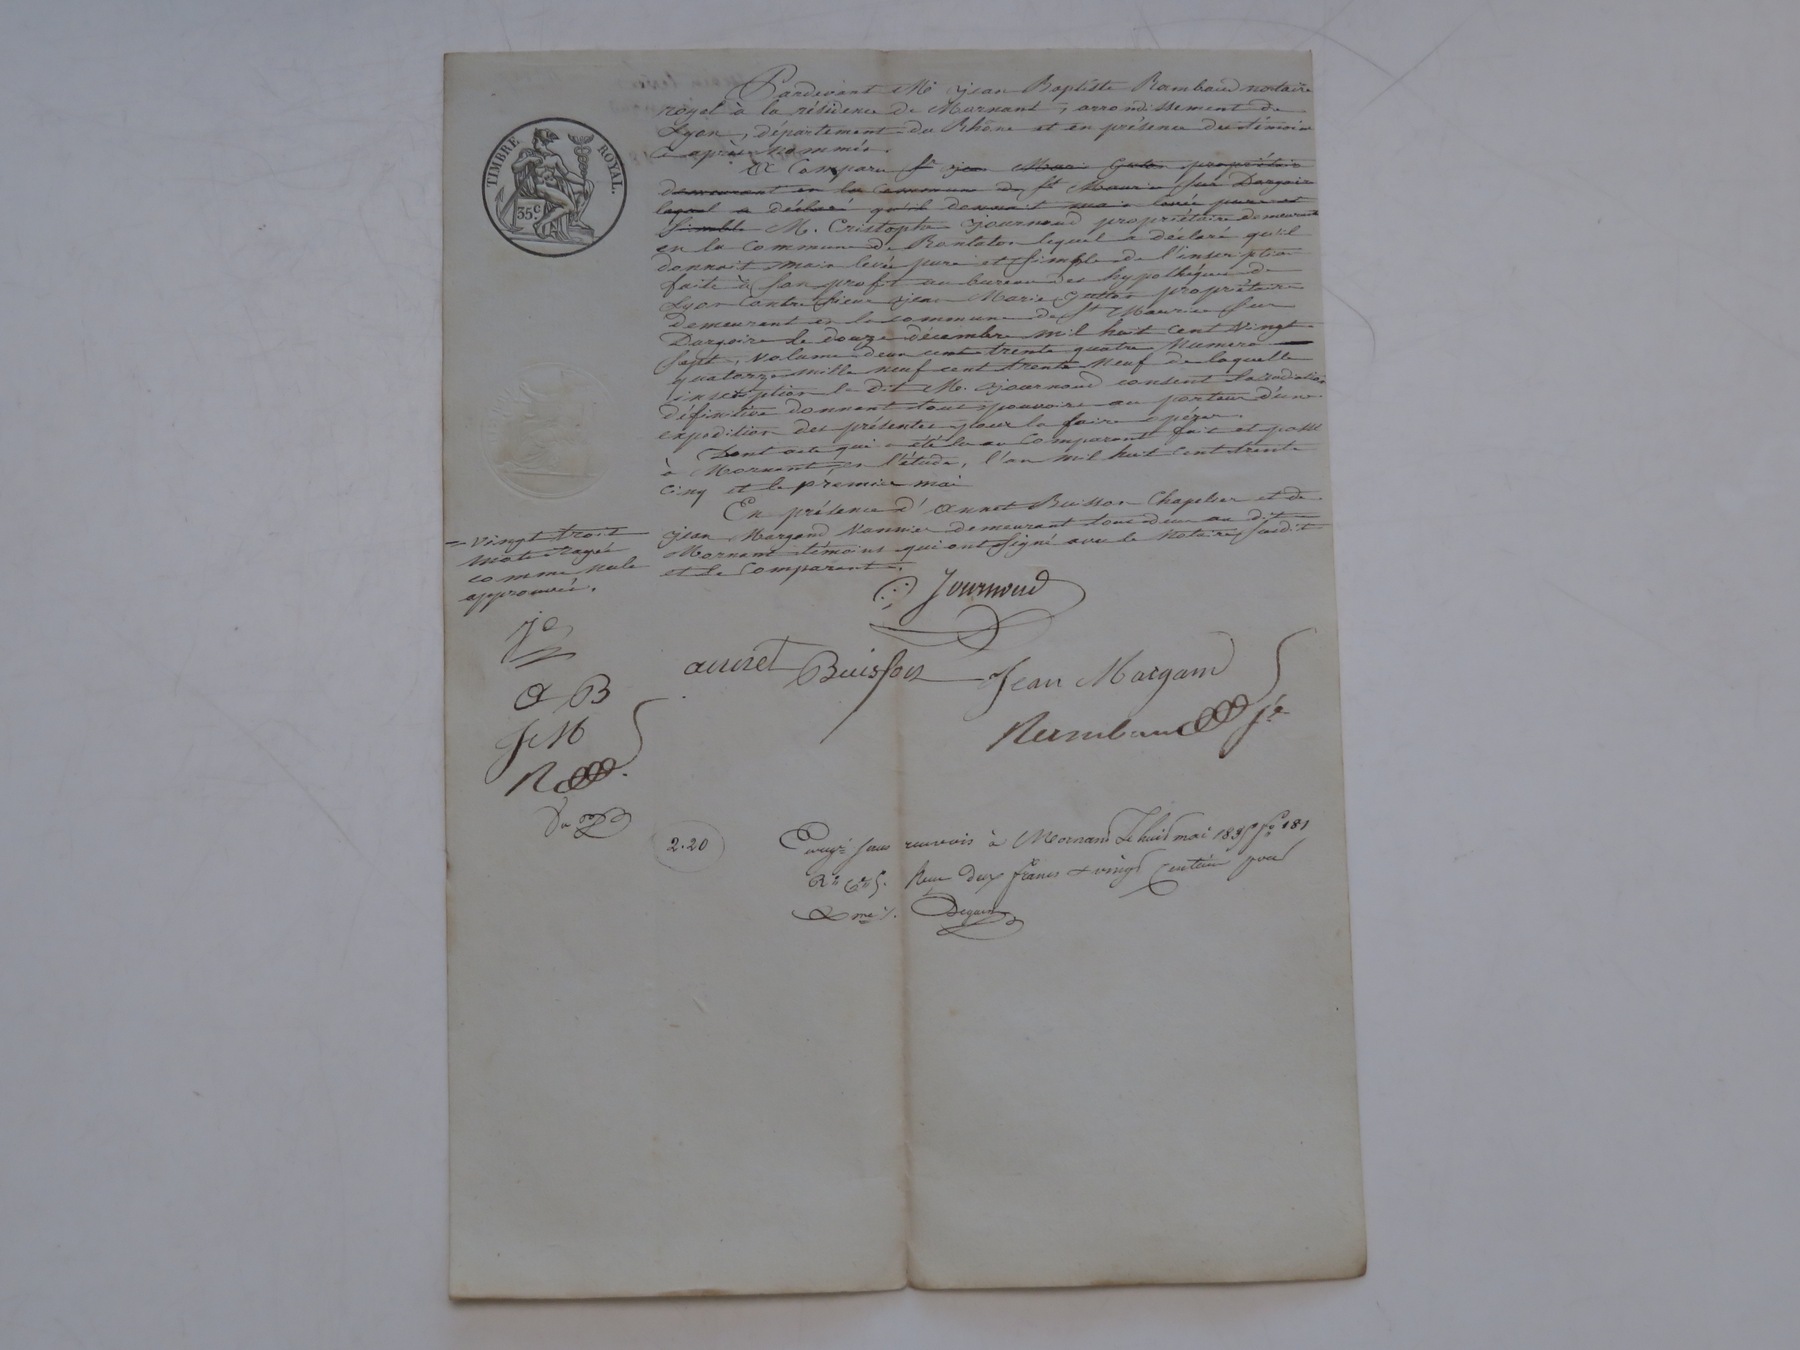 Pardevant Me jean Baptiste Rambaud notaire
royal à la résidence de Mornant, arrondissement de
Lyon, département du Rhône et en présence des témoins
ci après nommés.
A Comparu sr jean Marie Guton propriétaire
demeurant en la Commune de St Maurice sur Dargoire
lequel a déclaré qu'il donnait main levée pure et
simple M. Cristophe journoud propriétaire demeurant
en la Commune de Rontalon lequel a déclaré qu'il
donnait main levée pure et simple de l'inscription
faite à son profit au bureau des hypothèques de
Lyon Contre sieur jean Marie Gutton propriétaire
demeurant en la commune de St Maurice sur
Dargoire le douze décembre mil huit cent vingt
sept, volume deux cent trente quatre Numéro
quatorze mille neuf cent trente neuf de laquelle
inscription le dit M. journoud consent la radiation
définitive donnant tout pouvoir au porteur d'une
expedition des présentes pour la faire opérer.
Dont acte qui a été lu au Comparant fait et passé
à Mornant, en l'étude, l'an mil huit Cent trente
cinq et le premier mai
En présence d'annet Buisson Chapelier et de
jean Margand Vannier demeurant tous deux au dit
Mornant témoins qui ont signé avec le Notaire susdit
et le Comparant.
= vingt trois
mots rayés
comme nuls
approuvés.
TIMBRE ROYAL.
35c.
Journoud
annet Buisson Jean Margand
Rambaud
J
a B
J M
R
2.20
Enregt sous renvois à Mornant Le huit mai 1835 fo 181
Ro Ces 5. Reçu deux francs & vingt centimes pour